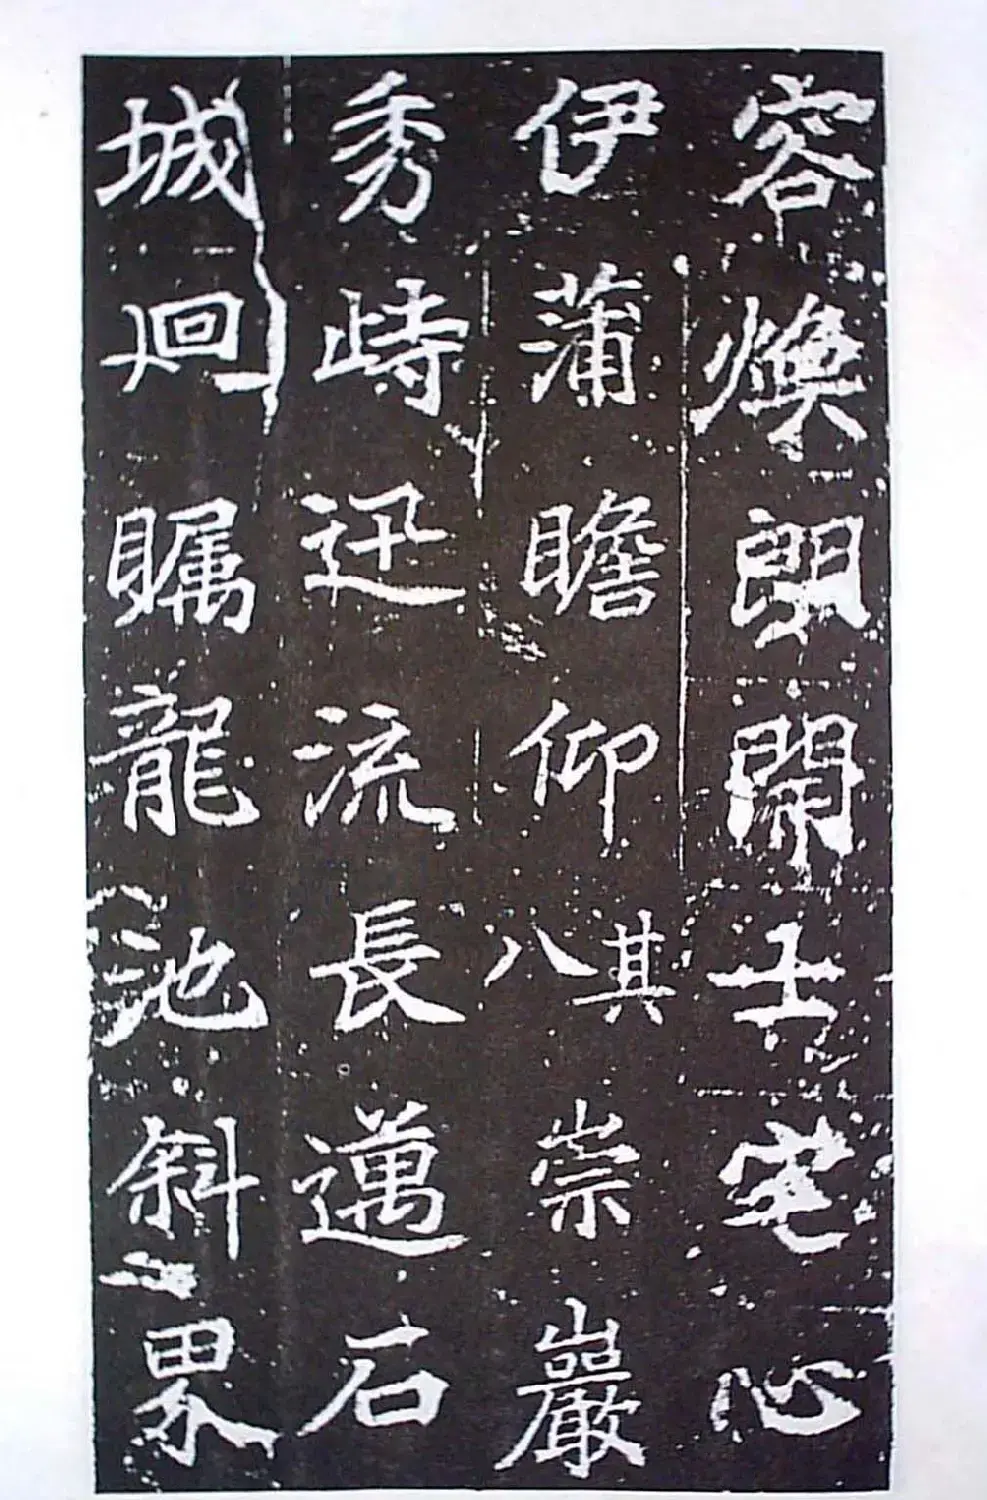 容煥朗開士宅心
伊蒲瞻仰其八崇巖
秀峙迅流長邁石
城廻矚龍池斜界